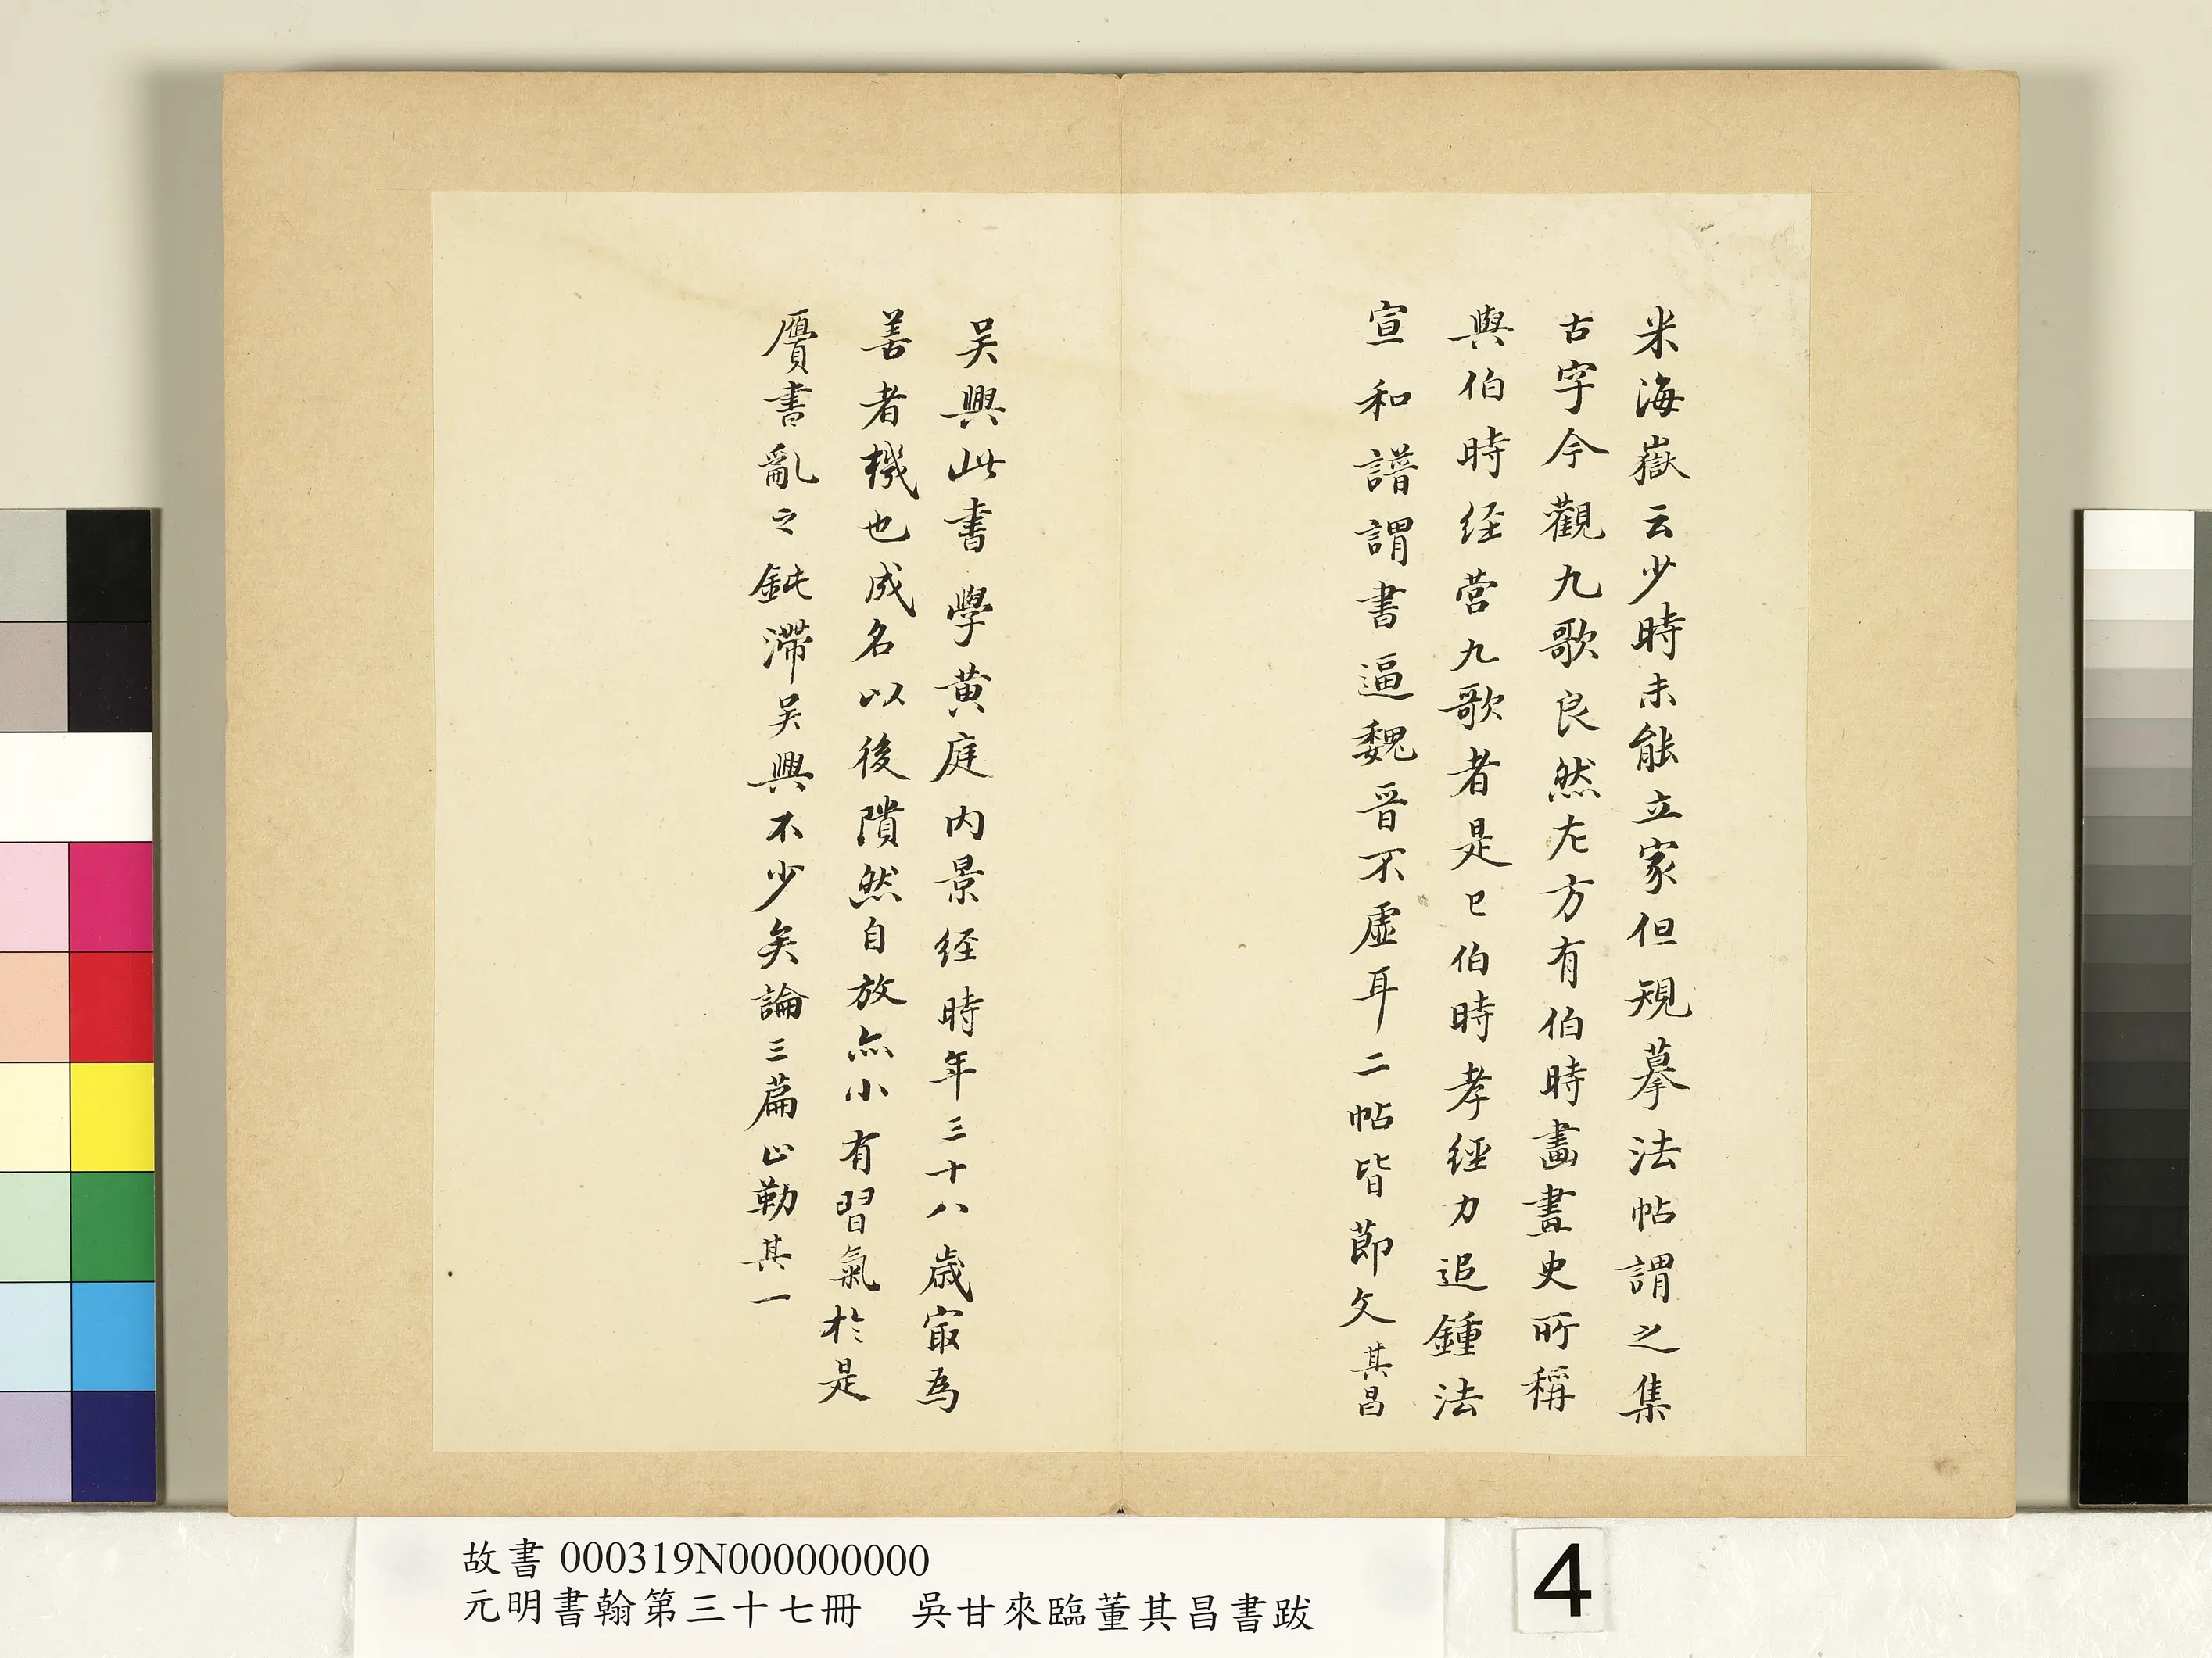 米海嶽云少時未能立家但規摹法帖謂之集
古字今觀九歌良然左方有伯時畵畫史所稱
與伯時经营九歌者是已伯時孝經力追鍾法
宣和譜謂書逼魏晉不虛耳二帖皆節文其昌
吴興此書學黄庭内景经時年三十八歳㝡為
善者機也成名以後隤然自放亦小有習氣於是
贋書亂之鈍滯吴興不少矣論三篇止勒其一
故書 000319N000000000
元明書翰第三十七冊 吳甘來臨董其昌書跋
4